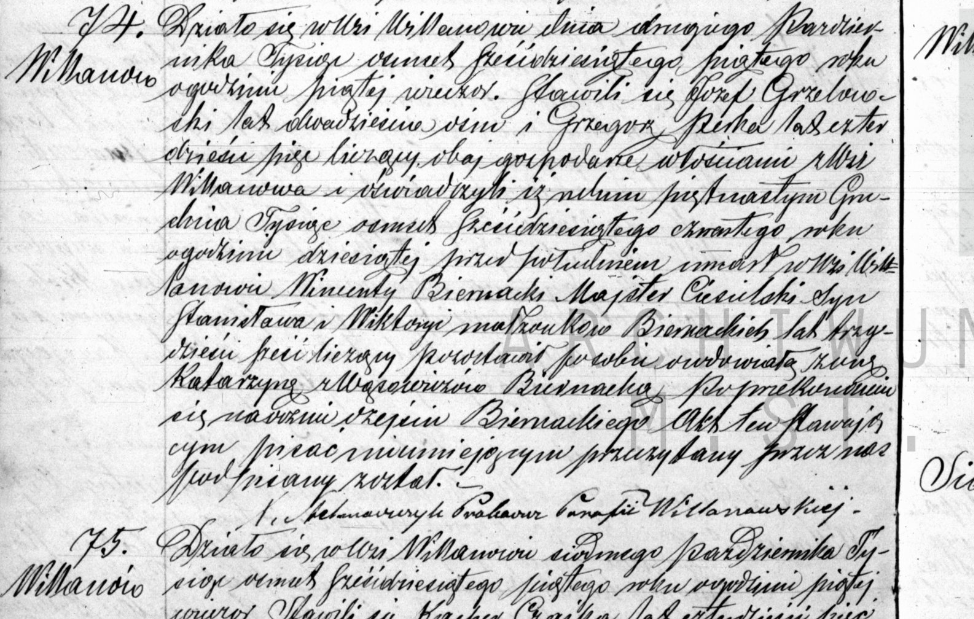 74.
Willanów
Działo się w Wsi Willanowie dnia drugiego Paździer-
nika Tysiąc osmset sześćdziesiątego piątego roku
o godzinie piątej wieczor. Stawili się Jozef Grzelow-
ski lat dwadzieścia osm i Grzegorz Peska lat czter
dzieści pięć liczący, obaj gospodarze włościanie z Wsi
Willanowa i oświadczyli iż w dniu piętnastym Gru-
dnia Tysiąc osmset sześćdziesiątego czwartego roku
o godzinie dziesiątej przed południem umarł w Wsi Wil-
lanowie Wincenty Biernacki Majster Ciesielski Syn
Stanisława i Wiktoryi małżonków Biernackich, lat trzy-
dzieści sześć liczący pozostawił po sobie owdowiałą żonę
Katarzynę z Wąsowiczów Biernacką. Po przekonaniu
się naocznie o zejściu Biernackiego Akt ten stawają-
cym pisać nieumiejącym przeczytany przez nas
podpisany został.
Proboszcz Parafii Willanowskiej.
75.
Willanów
Działo się w Wsi Willanowie siodmego Października Ty-
siąc osmset sześćdziesiątego piątego roku o godzinie piątej
wieczor Stawili się Kacper lat czterdzieści pięć
Wil
ARCHIWUM
M.ST.